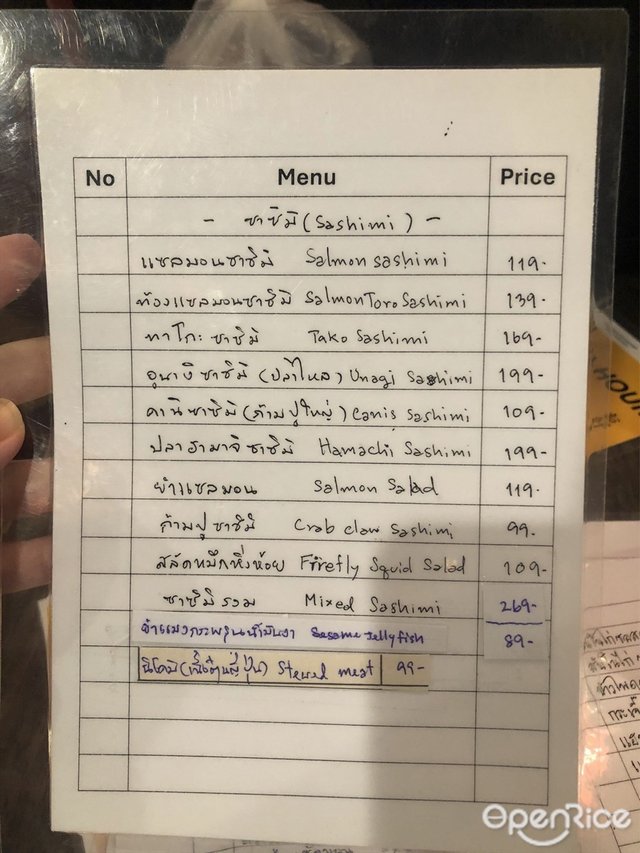 No Menu Price
- ซาซิมิ (Sashimi) -
แซลมอนซาซิมิ Salmon sashimi 119-
ท้องแซลมอนซาซิมิ Salmon Toro Sashimi 139-
ทาโกะซาซิมิ Tako Sashimi 169-
อูนางิซาซิมิ (ปลาไหล) Unagi Sashimi 199-
คานิซาซิมิ (ก้ามปูใหญ่) Canis Sashimi 109-
ปลาฮามาจิซาซิมิ Hamachi Sashimi 199-
ยำแซลมอน Salmon Salad 119-
ก้ามปูซาซิมิ Crab claw Sashimi 99-
สลัดหมึกหิ่งห้อย Firefly Squid Salad 109-
ซาซิมิรวม Mixed Sashimi 269-
ยำแมงกะพรุนน้ำมันงา Sesame Jellyfish 89-
นิโคมิ (เนื้อตุ๋นญี่ปุ่น) Stewed meat 99-
HOUR
OpenRice